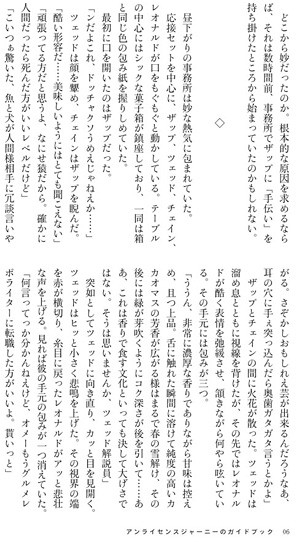 どこから妙だったのか。根本的な原因を求めるなら
ば、それは数時間前、事務所でザップに「手伝い」を
持ち掛けたところから始まっていたのかもしれない。
◇
昼下がりの事務所は妙な熱気に包まれていた。
応接セットを中心に、ザップ、ツェッド、チェイン、
レオナルドが口をもぐもぐと動かしている。テーブル
の中心にはシックな菓子箱が鎮座しており、一同は箱
と同じ色の包み紙を握りしめていた。
最初に口を開いたのはザップだった。
「ンだよこれ、ドッチャクソうめえじゃねえか……」
ツェッドは顔を顰め、チェインはザップを睨んだ。
「酷い形容だ……美味しいようにはとても聞こえない」
「頑張ってる方だと思うよ、なにせ猿だから。確かに
人間だったら死んだ方がいいレベルだけど」
「こいつぁ驚いた、魚と犬が人間様相手に冗談言いや
がる。さぞかしおもしれえ芸が出来るんだろうなあ、
耳の穴に手ぇ突っ込んだら奥歯ガタガタ言うとかよ」
ザップとチェインの間に火花が散った。ツェッドは
溜め息とともに視線を背けたが、その先ではレオナル
ドが酷く表情を弛緩させ、頷きながら何やら呟いてい
る。その手元には包みが三つ。
「ううん、非常に濃厚な香りでありながら甘味は控え
め、且つ上品。舌に触れた瞬間に溶けて純度の高いカ
カオマスの芳香が広がる様はまるで春の雪解け、その
後には緑が芽吹くようにコク深さが後を引いて……あ
あ、これは香りで食す文化といっても決して大げさで
はない。そうは思いませんか、ツェッド解説員」
突如としてツェッドに向き直り、カッと目を見開く。
ツェッドはヒッと小さく悲鳴を上げた。その視界の端
を赤が横切り、糸目に戻ったレオナルドがアッと悲壮
な声を上げる。見れば彼の手元の包みが一つ消えていた。
「何言ってっか分かんねえけど、オメーもうグルメレ
ポライターに転職した方がいいよ。貰いっと」
アンライセンスジャーニーのガイドブック 06